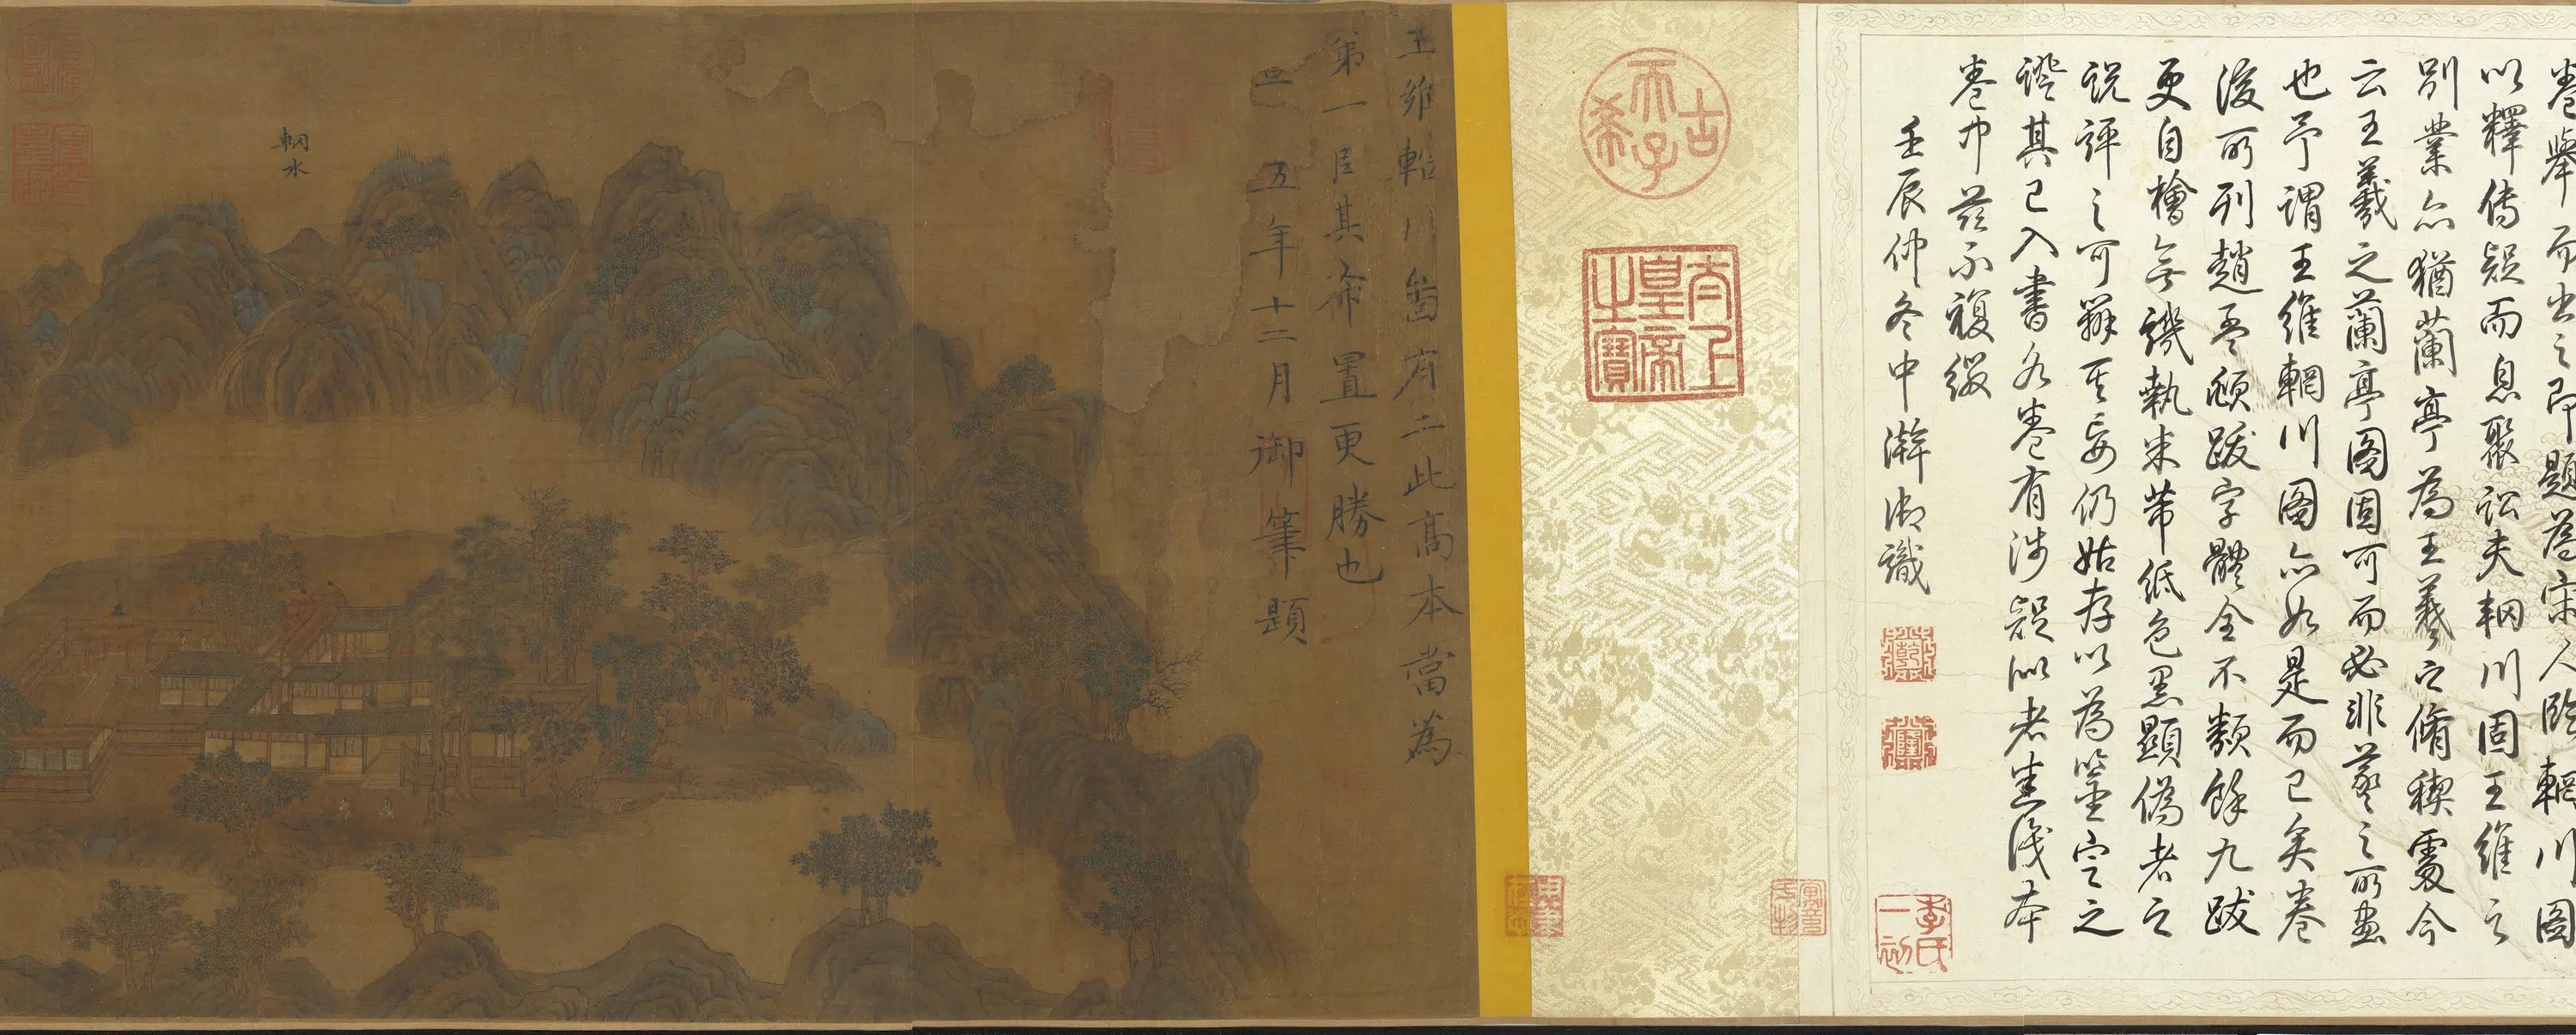 卷舉而出之即題為宋人臨輞川圖
以釋傳疑而息聚訟夫輞川固王維之
別業亦猶蘭亭為王羲之脩禊處今
云王羲之蘭亭圖固可而必非羲之所畫
也予謂王維輞川圖亦如是而已矣卷
後所刊趙孟頫跋字體全不類餘九跋
更自檜無譏執米芾紙色黑顯偽者之
說評之可辨其妄仍姑存以為鑒定之
證其已入書各卷有涉疑似者悉識本
卷中茲不複綴
壬辰仲冬中澣御識
乾
隆
李氏一初
古希天子
太上皇帝之寶
王維輞川啚有二此高本當為
第一其布置更勝也
五年十二月御筆題
輞水